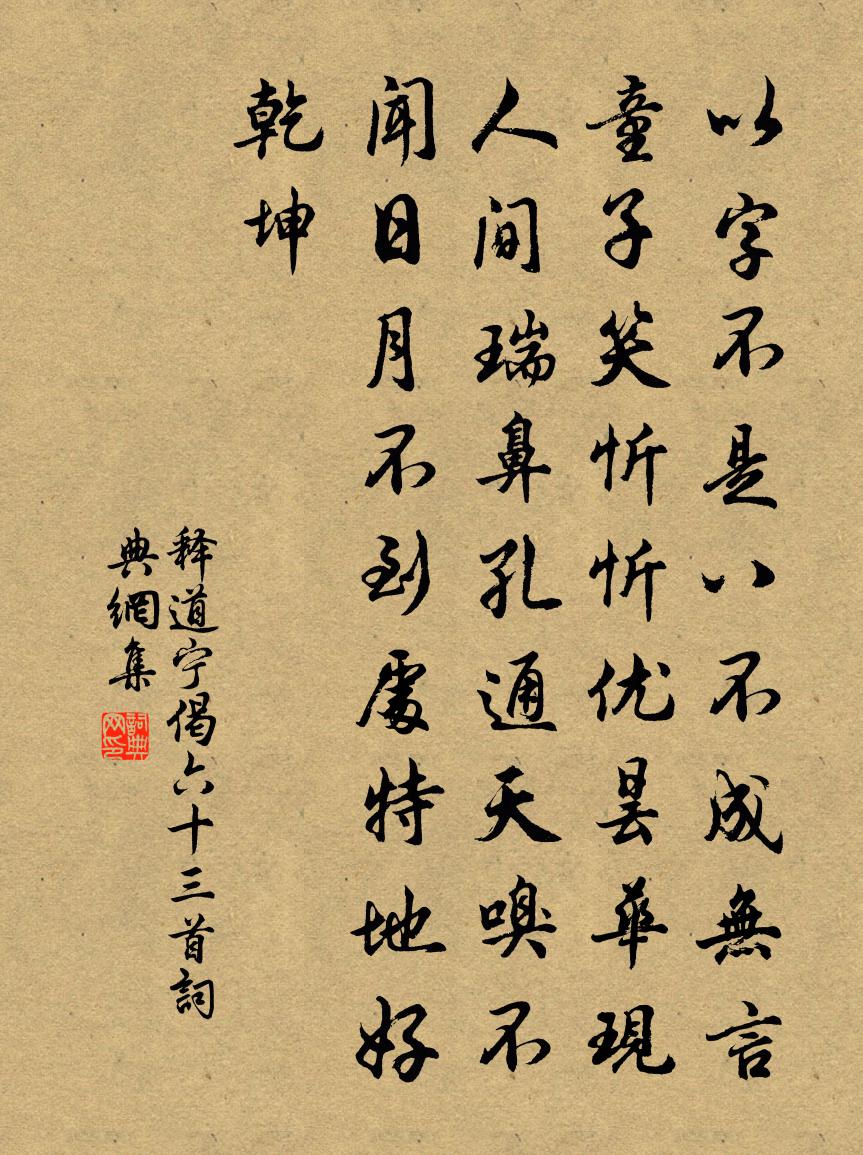 以字不是八不成無言
童子笑忻忻优昙華現
人间瑞鼻孔通天嗅不
闻日月不到處特地好
乾坤
释道宁偈六十三首詞
典網集
詞典
网印